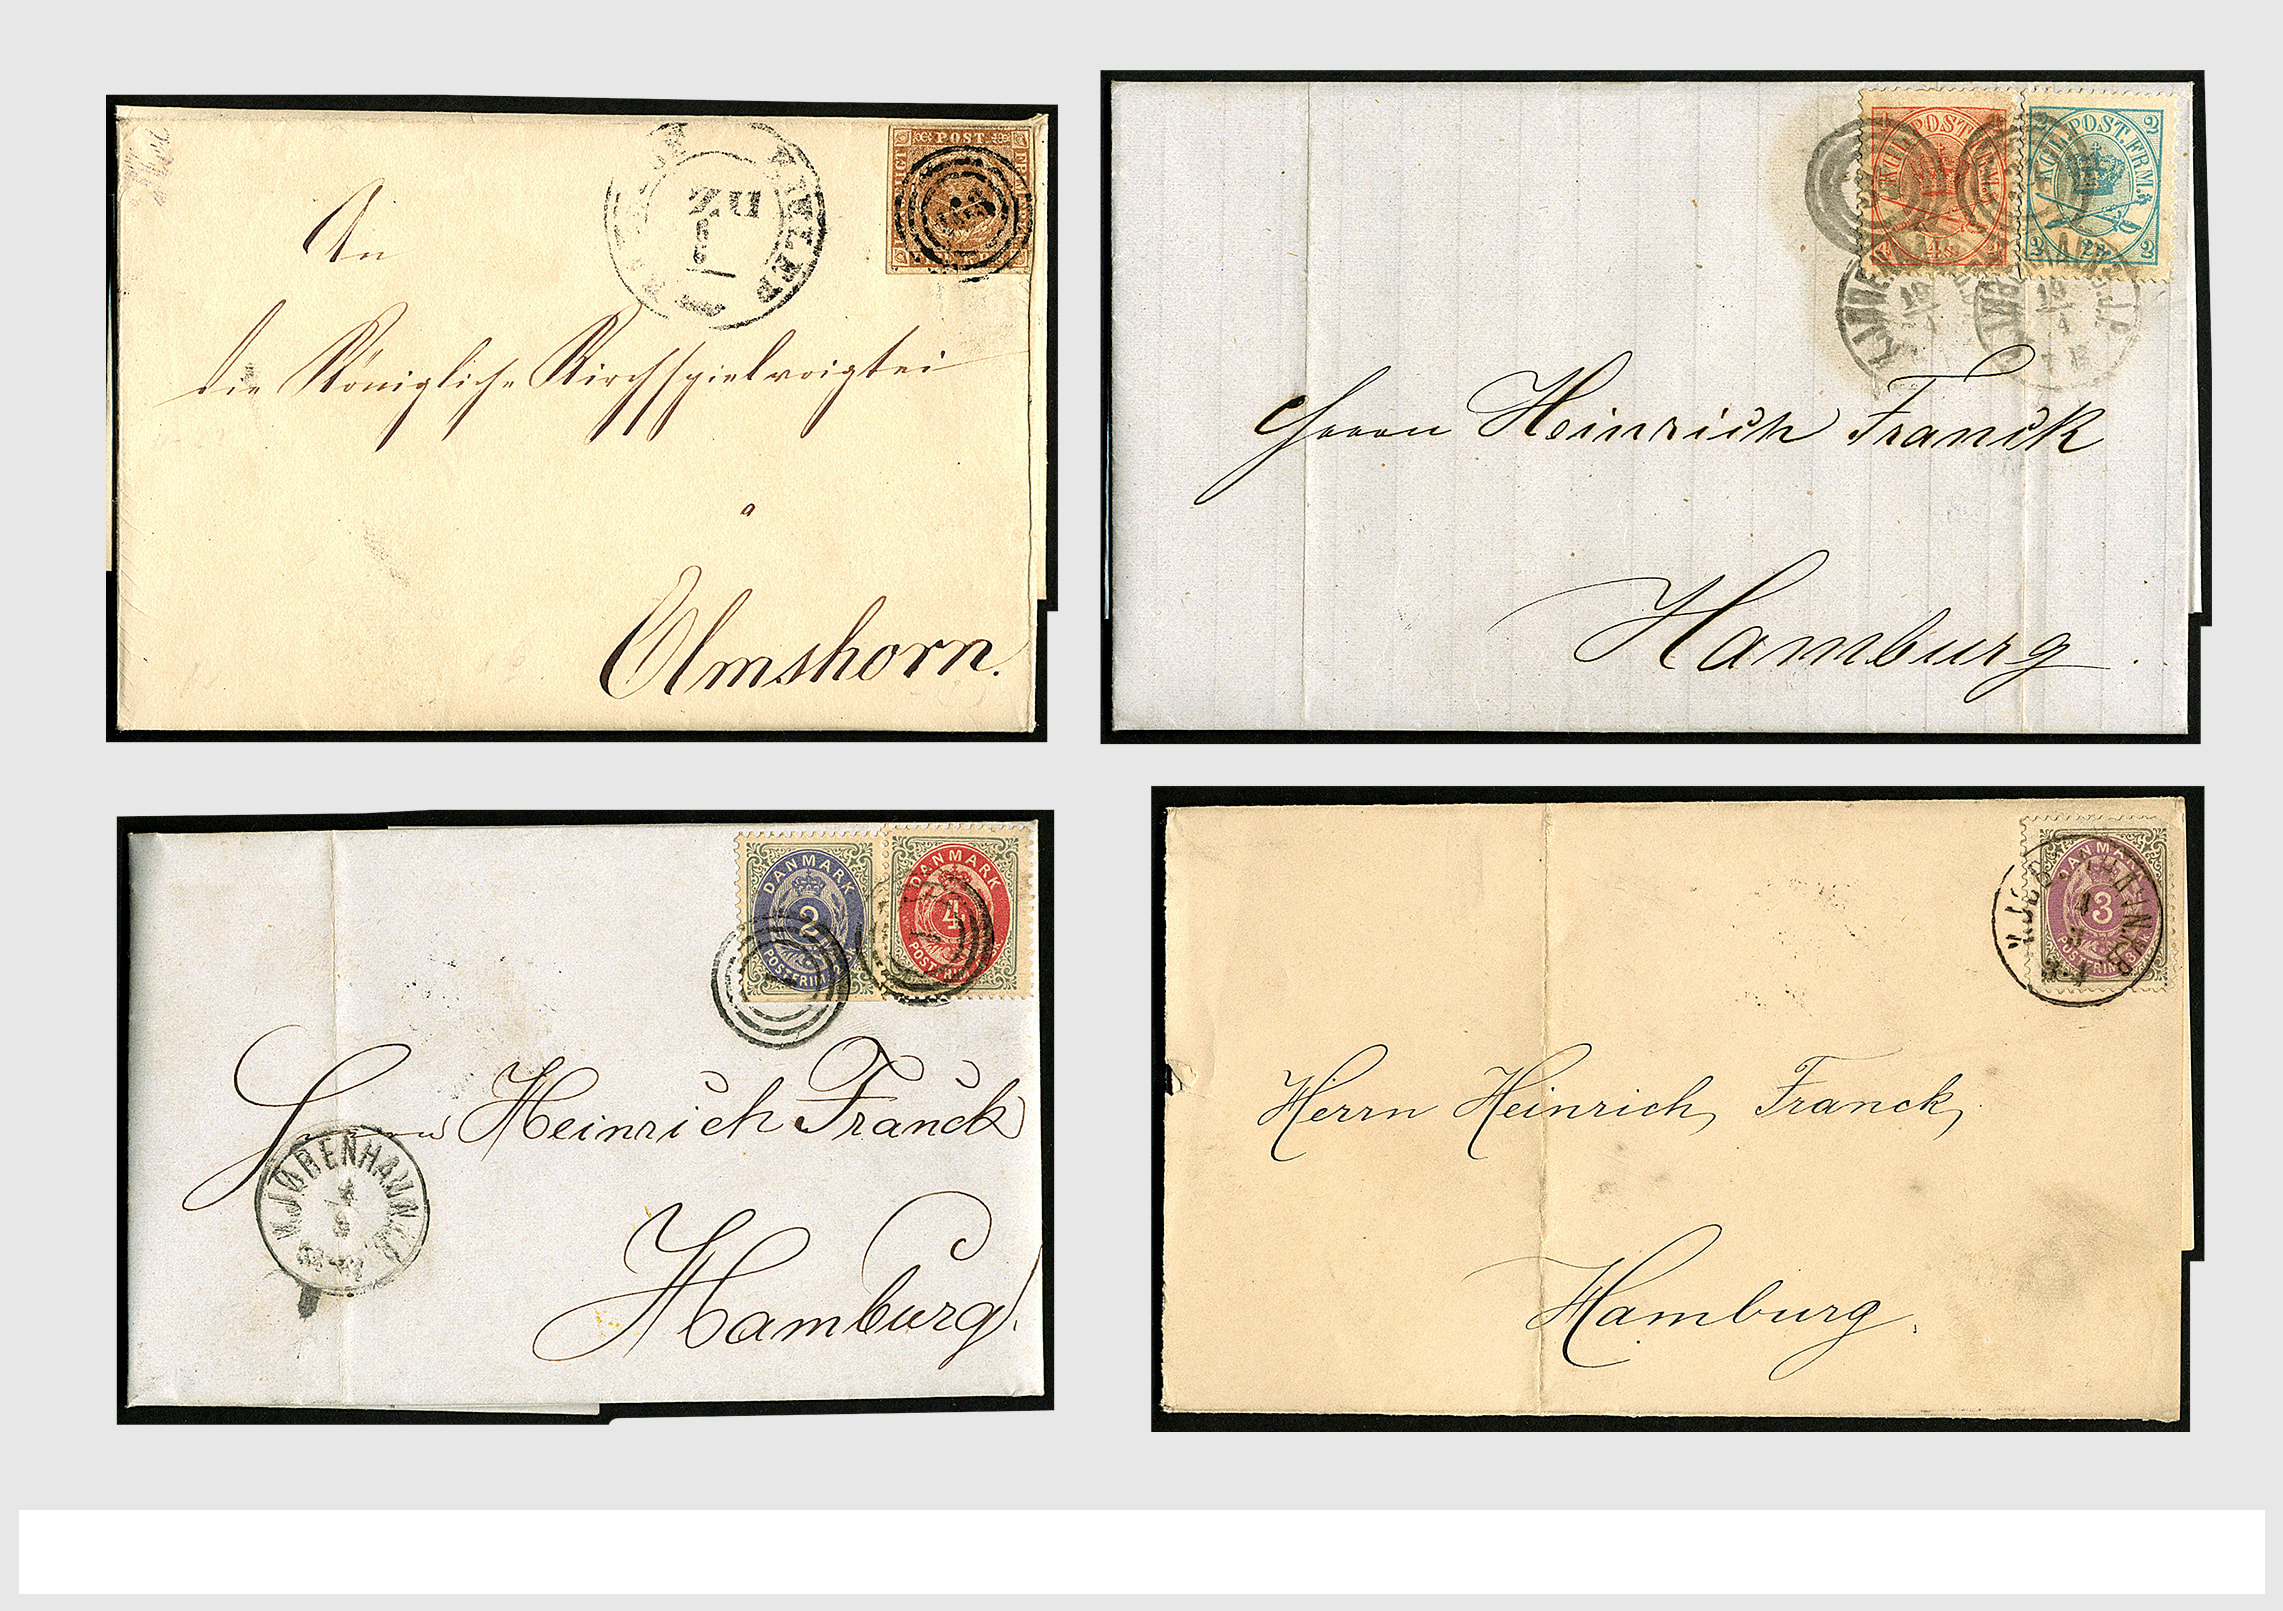 An
die Königliche Kirchspielvoigtei
a
Elmshorn.
POST
KGL. POST. FRM.
4s
KGL. POST. FRM.
2 2
2 2s 2
18
4
Herrn Heinrich Franck
Hamburg.
DANMARK
2
POSTFRIM.
DANMARK
4
POSTFRIM.
Herrn Heinrich Franck
KJØBENHAVN
Hamburg.
DANMARK
3
POSTFRIM. 3
Herrn Heinrich Franck,
Hamburg.